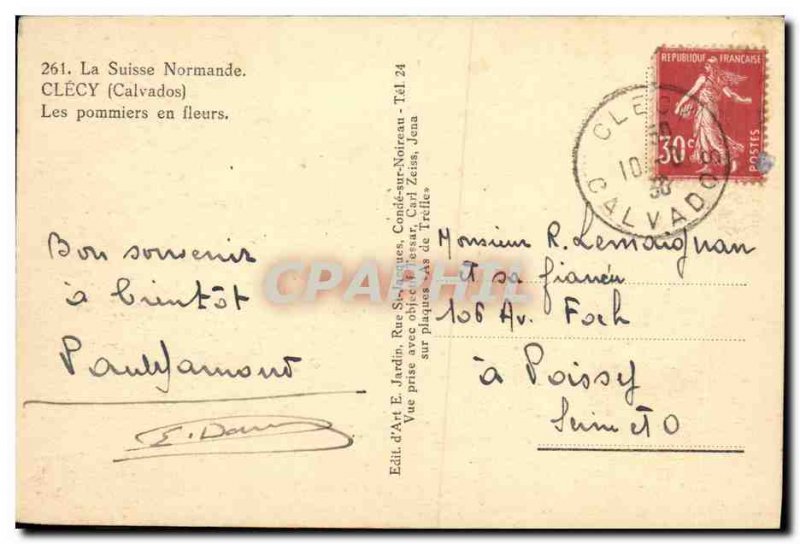 261. La Suisse Normande.
CLÉCY (Calvados)
Les pommiers en fleurs.
Bon souvenir
à bientôt
Edit. d'Art E. Jardin, Rue St-Jacques, Condé-sur-Noireau - Tél. 24
Vue prise avec objectif Tessar, Carl Zeiss, Jena
sur plaques «As de Trèfle»
REPUBLIQUE FRANÇAISE
30c
POSTES
CLECY
10
CALVADOS
Monsieur R. Lemaignan
et sa fiancée
106 Av. Foch
à Poissy
Seine et O
CPAPHIL